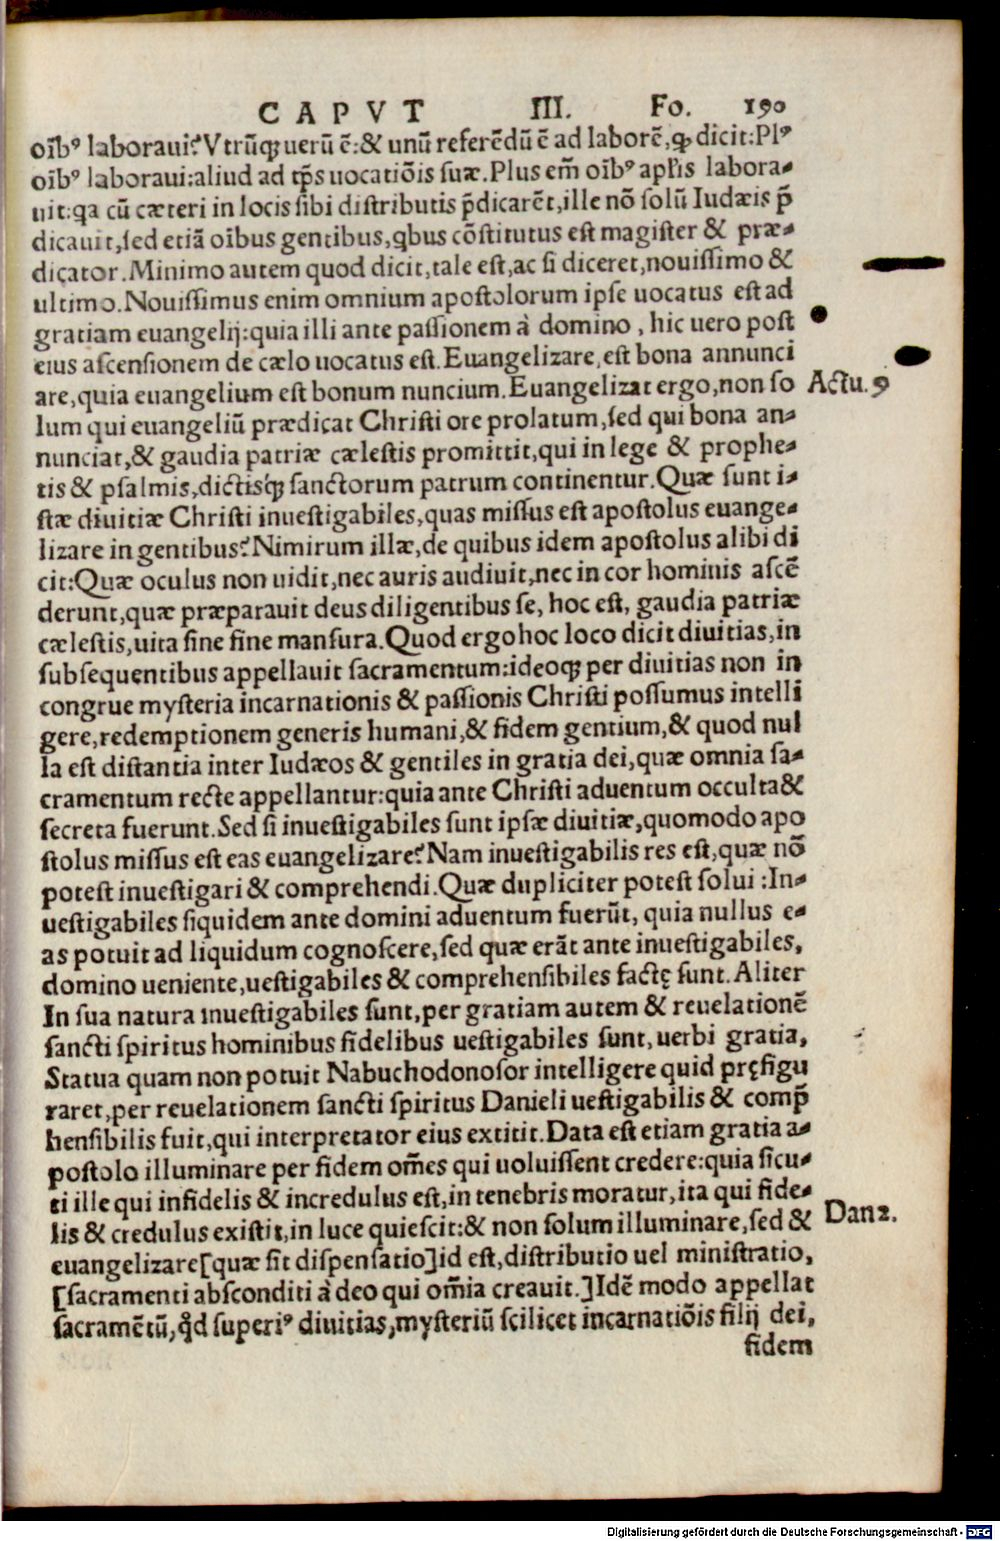 CAPVT III. Fo. 190
oīb⁹ laboraui? Vtrūq; uerū ē: & unū referēdū ē ad laborē, ꝙ dicit: Pl⁹
oīb⁹ laboraui: aliud ad tp̄s uocatiōis suæ. Plus em̄ oīb⁹ apl'is labora-
uit: qa cū cæteri in locis sibi distributis p̄dicarēt, ille nō solū Iudæis p̄
dicauit, sed etiā oībus gentibus, qbus cōstitutus est magister & præ-
dicator. Minimo autem quod dicit, tale est, ac si diceret, nouissimo &
ultimo. Nouissimus enim omnium apostolorum ipse uocatus est ad
gratiam euangelij: quia illi ante passionem à domino, hic uero post
eius ascensionem de cælo uocatus est. Euangelizare, est bona annunci
are, quia euangelium est bonum nuncium. Euangelizat ergo, non so
Actu. 9
lum qui euangeliū prædicat Christi ore prolatum, sed qui bona an-
nunciat, & gaudia patriæ cælestis promittit, qui in lege & prophe-
tis & psalmis, dictisq; sanctorum patrum continentur. Quæ sunt i-
stæ diuitiæ Christi inuestigabiles, quas missus est apostolus euange-
lizare in gentibus? Nimirum illæ, de quibus idem apostolus alibi di
cit: Quæ oculus non uidit, nec auris audiuit, nec in cor hominis ascē
derunt, quæ præparauit deus diligentibus se, hoc est, gaudia patriæ
cælestis, uita sine fine mansura. Quod ergo hoc loco dicit diuitias, in
subsequentibus appellauit sacramentum: ideoq; per diuitias non in
congrue mysteria incarnationis & passionis Christi possumus intelli
gere, redemptionem generis humani, & fidem gentium, & quod nul
la est distantia inter Iudæos & gentiles in gratia dei, quæ omnia sa-
cramentum recte appellantur: quia ante Christi aduentum occulta &
secreta fuerunt. Sed si inuestigabiles sunt ipsæ diuitiæ, quomodo apo
stolus missus est eas euangelizare? Nam inuestigabilis res est, quæ nō
potest inuestigari & comprehendi. Quæ dupliciter potest solui: In-
uestigabiles siquidem ante domini aduentum fuerūt, quia nullus e-
as potuit ad liquidum cognoscere, sed quæ erāt ante inuestigabiles,
domino ueniente, uestigabiles & comprehensibiles factę sunt. Aliter
In sua natura inuestigabiles sunt, per gratiam autem & reuelationē
sancti spiritus hominibus fidelibus uestigabiles sunt, uerbi gratia,
Statua quam non potuit Nabuchodonosor intelligere quid pręfigu
raret, per reuelationem sancti spiritus Danieli uestigabilis & comp̄
hensibilis fuit, qui interpretator eius extitit. Data est etiam gratia a-
postolo illuminare per fidem om̄es qui uoluissent credere: quia sicu-
ti ille qui infidelis & incredulus est, in tenebris moratur, ita qui fide-
lis & credulus existit, in luce quiescit: & non solum illuminare, sed &
Dan 2.
euangelizare [quæ sit dispensatio] id est, distributio uel ministratio,
[sacramenti absconditi à deo qui om̄ia creauit.] Idē modo appellat
sacramētū, qd̄ superi⁹ diuitias, mysteriū scilicet incarnatiōis filij dei,
fidem
Digitalisierung gefördert durch die Deutsche Forschungsgemeinschaft - DFG